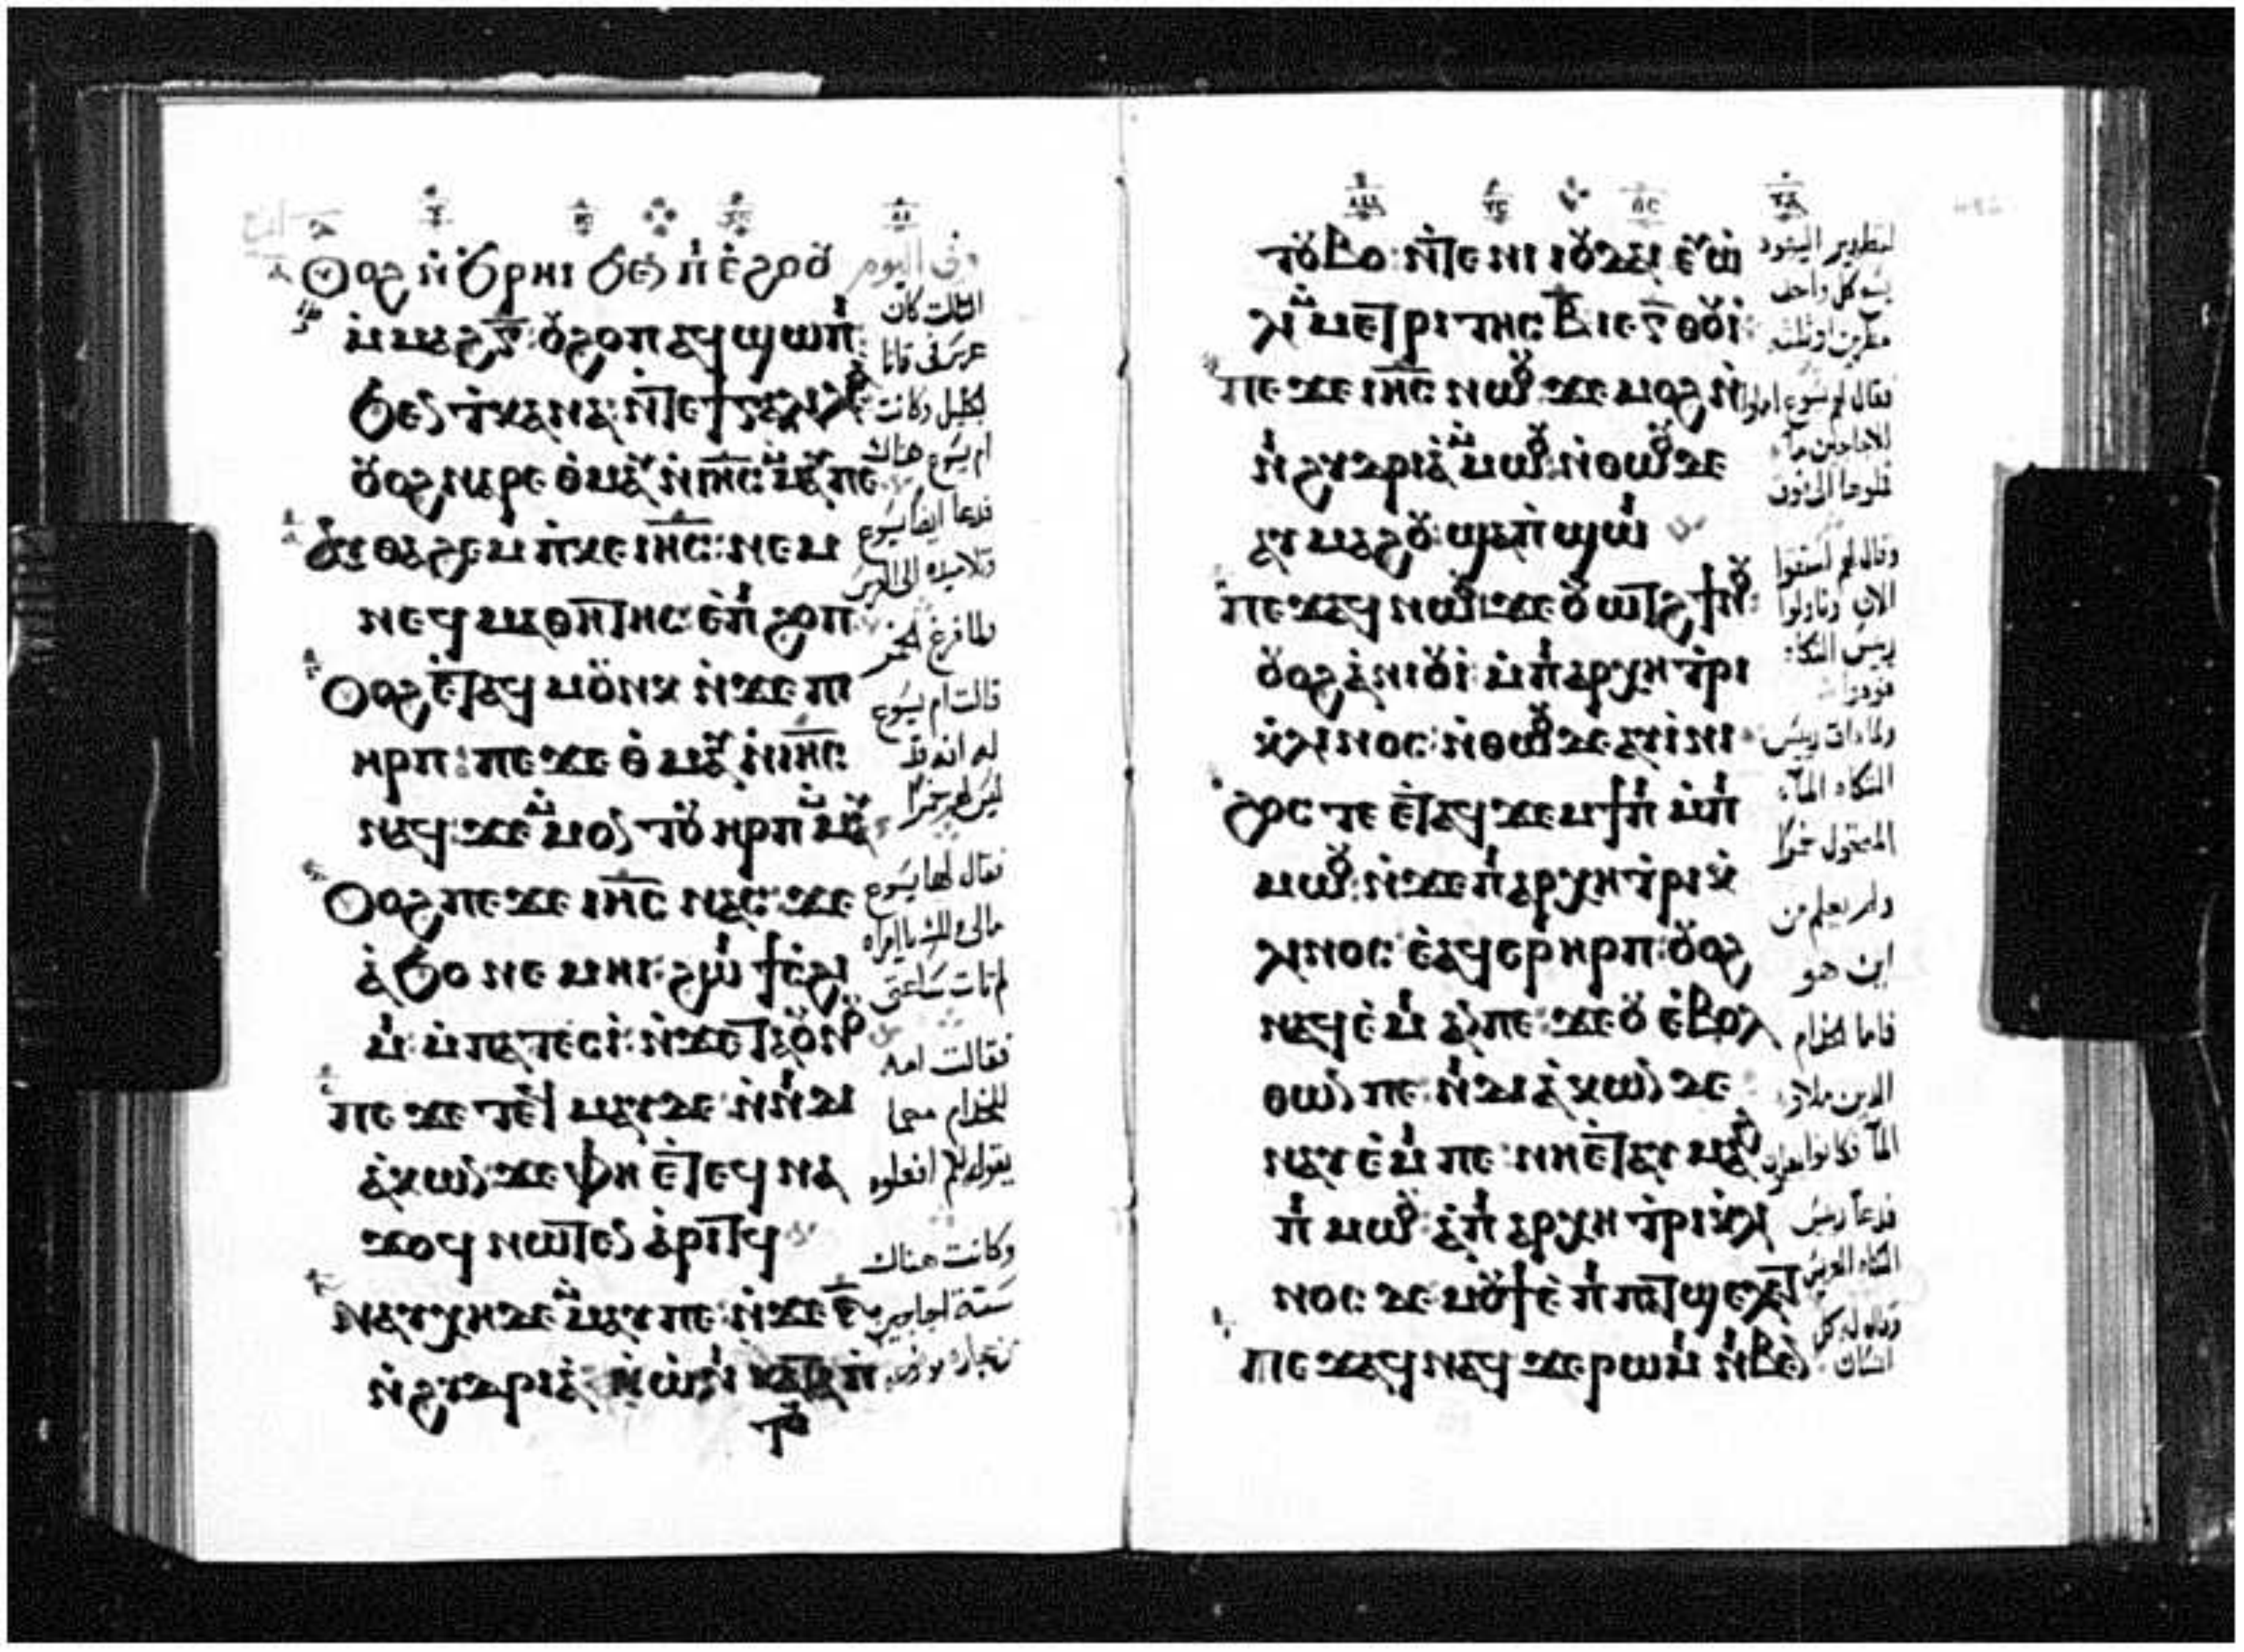 Ⲟⲩⲟϩ ⲛ̀ϧⲣⲏⲓ ϧⲉⲛ ⲡⲓⲉ̀ϩⲟⲟⲩ
ⲙ̀ⲙⲁϩⲅ̅: ⲟⲩϩⲟⲡ ⲁϥϣⲱⲡⲓ
ϧⲉⲛ ⲧ̀ⲕⲁⲛⲁ ⲛ̀ⲧⲉ ϯⲅⲁⲗⲓⲗⲉⲁ:
ⲟⲩⲟϩ ⲛⲁⲣⲉ ⲑ̀ⲙⲁⲩ ⲛ̀ⲓⲏ̅ⲥ̅ ⲙ̀ⲙⲁⲩ ⲡⲉ
ⲁⲩⲑⲁϩⲉⲙ ⲡ̀ⲕⲉ ⲓⲏ̅ⲥ̅: ⲛⲉⲙ
ⲛⲉϥⲙⲁⲑⲏⲧⲏⲥ: ⲉ̀ⲡⲓϩⲟⲡ
Ⲟⲩⲟϩ ⲉ̀ⲧⲁϥⲙⲟⲩⲛⲕ ⲛ̀ϫⲉ ⲡⲓ
ⲏⲣⲡ: ⲡⲉϫⲉ ⲑ̀ⲙⲁⲩ ⲛ̀ⲓⲏ̅ⲥ̅
ⲛⲁϥ: ϫⲉ ⲙ̀ⲙⲟⲛ ⲧⲟⲩ ⲏⲣⲡ ⲙ̀ⲙⲁⲩ
Ⲟⲩⲟϩ ⲡⲉϫⲉ ⲓⲏ̅ⲥ̅ ⲛⲁⲥ: ϫⲉ
ⲁ̀ϧⲟ ⲛⲉⲙⲏⲓ ϩⲱⲓ ϯⲥ̀ϩⲓ
ⲙⲓ: ⲙ̀ⲡⲁⲧⲉⲥⲓ̀: ⲛ̀ϫⲉ ⲧⲁⲟⲩⲛⲟⲩ
ⲡⲉϫⲉ ⲧⲉϥⲙⲁⲩ ⲇⲉ ⲛ̀ⲛⲓⲇⲓ
ⲁ̀ⲕⲱⲛ: ϫⲉ ⲫⲏ ⲉ̀ⲧⲉϥⲛⲁ
ϫⲟϥ ⲛⲱⲧⲉⲛ ⲁ̀ⲣⲓⲧϥ
ⲛⲁⲩⲭⲏ ⲇⲉ ⲙ̀ⲙⲁⲩ ⲡⲉ: ⲛ̀ϫⲉ ⲋ̅
ⲛ̀ϩⲩⲇⲣⲓⲁ̀: ⲛ̀ⲱ̀ⲛⲓ ⲕⲁⲧⲁ ⲡⲓ
وفى اليوم
الثالث كان
عرس فى قانا
الجليل وكانت
ام يسوع هناك
فدعا ايضا يسوع
وتلاميذه الى العرس
فلما فرغ الخمر
قالت ام يسوع
له انه قد
ليس لهم خمرا
فقال لها يسوع
مالى ولك يا امراه
لم تات ساعتى
فقالت امه
للخدام مهما
يقوله لكم افعلوه
وكانت هناك
ستة اجاجين
ⲧⲟⲩⲃⲟ: ⲛ̀ⲧⲉ ⲛⲓⲓⲟⲩⲇⲁⲓ ⲉⲩⲱ̀
ⲗⲓ ⲙ̀ⲙⲉⲧⲣⲓⲧⲏⲥ ⲃ̅ ⲓⲉ ⲅ̅ ⲑⲟⲩⲓ̀:
ⲡⲉϫⲉ ⲓⲏ̅ⲥ̅ ⲛⲱⲟⲩ ϫⲉ ⲙⲟϩ ⲛ̀
ⲛⲓϩⲩⲇⲣⲓⲁ̀ ⲙ̀ⲙⲱⲟⲩ: ⲛ̀ⲑⲱⲟⲩ ⲇⲉ
ⲁⲩⲙⲁϩⲟⲩ: ϣⲁⲡ̀ϣⲱⲓ
ⲡⲉϫⲁϥ ⲛⲱⲟⲩ: ϫⲉ ⲟⲩⲱⲧϩ ϯⲛⲟⲩ:
ⲟⲩⲟϩ ⲁ̀ⲛⲓⲟⲩⲓ̀: ⲙ̀ⲡⲓⲁⲣⲭⲏⲧⲣⲓ
ⲕ̀ⲗⲓⲛⲟⲥ: ⲛ̀ⲑⲱⲟⲩ ⲇⲉ ⲁⲩⲓ̀ⲛⲓ
ϩⲟⲥ ⲧⲉ ⲉ̀ⲧⲁϥϫⲉⲙϯⲡⲓ ⲙ̀ⲡⲓ
ⲙⲱⲟⲩ: ⲛ̀ϫⲉ ⲡⲓⲁⲣⲭⲏⲧⲣⲓⲕ̀
ⲗⲓⲛⲟⲥ: ⲉ̀ⲁϥⲉⲣⲏⲣⲡ: ⲟⲩⲟϩ
ⲛⲁϥⲉ̀ⲙⲓ ⲁⲛ ⲡⲉ: ϫⲉ ⲟⲩ ⲉ̀ⲃⲟⲗ
ⲑⲱⲛ ⲡⲉ: ⲛⲓⲇⲓⲁ̀ⲕⲱⲛ ⲇⲉ
ⲛⲁⲩⲉ̀ⲙⲓ ⲡⲉ: ⲛⲏ ⲉ̀ⲧⲁⲩⲙⲁϩ
ⲡⲓⲙⲱⲟⲩ: ⲁ̀ⲡⲓⲁⲣⲭⲏⲧⲣⲓⲕ̀ⲗⲓ
ⲛⲟⲥ ⲇⲉ ⲙⲟⲩϯ ⲉ̀ⲡⲓⲡⲁⲧϣⲉⲗⲉⲧ
ⲡⲉϫⲁϥ ⲛⲁϥ ϫⲉ ⲣⲱⲙⲓ ⲛⲓⲃⲉⲛ
لتطهير اليهود
يسع كل واحد
مطرين او ثلثه
فقال لهم يسوع املوا
الاجاجين مآء
فلوها الى فوق
وقال لهم استقوا
الان وناولوا
ريس المتكآ
فلما ذاق ريس
المتكاه المآء
المتحول خمرا
ولم يعلم من
اين هو
فاما الخدام
الذين ملاوا
المآ فكانوا يعلمون
فدعا ريس
المتكاه العريس
وقال له كل
انسان